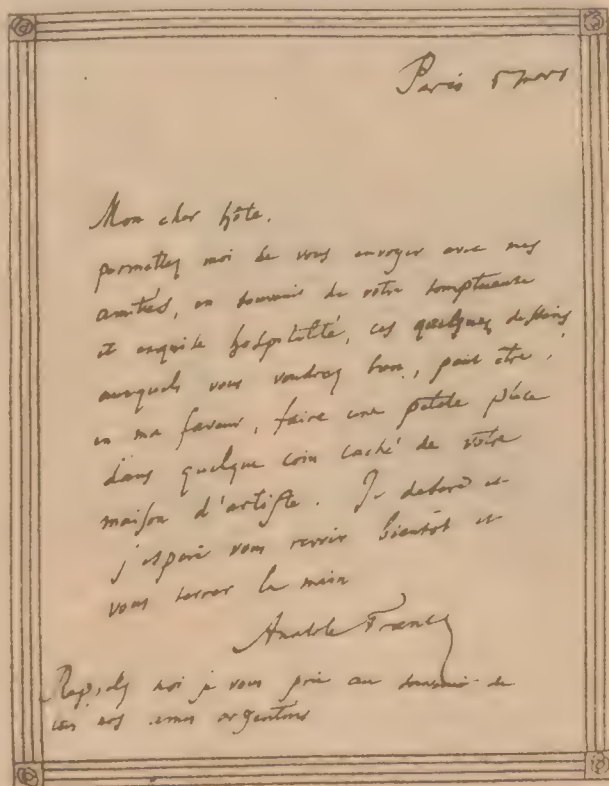 Paris 5 mars
Mon cher hôte,
permettez moi de vous envoyer avec mes
amitiés, en souvenir de votre somptueuse
et exquise hospitalité, ces quelques dessins
auxquels vous voudrez bien, peut être,
en ma faveur, faire une petite place
dans quelque coin caché de votre
maison d'artiste. Je et
j'espère vous revoir bientôt et
vous serrer la main
Anatole France
moi je vous prie au souvenir de
nos amis argentins